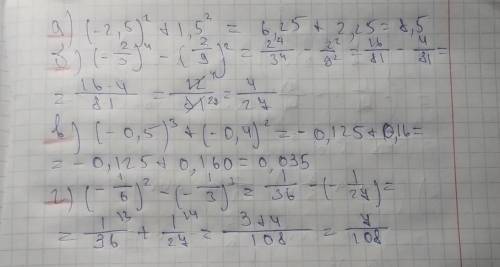 а) (-2,5)² + 1,5² = 6,25 + 2,25 = 8,5
б) (-2/3)⁴ - (2/9)² = 2⁴/3⁴ - 2²/9² = 16/81 - 4/81 =
= 16-4/81 = 12⁴/81₂₇ = 4/27
в) (-0,5)³ + (-0,4)² = -0,125 + 0,16 =
= -0,125 + 0,160 = 0,035
г) (-1/6)² - (-1/3)³ = 1/36 - (-1/27) =
= 1\3/36 + 1\4/27 = 3+4/108 = 7/108